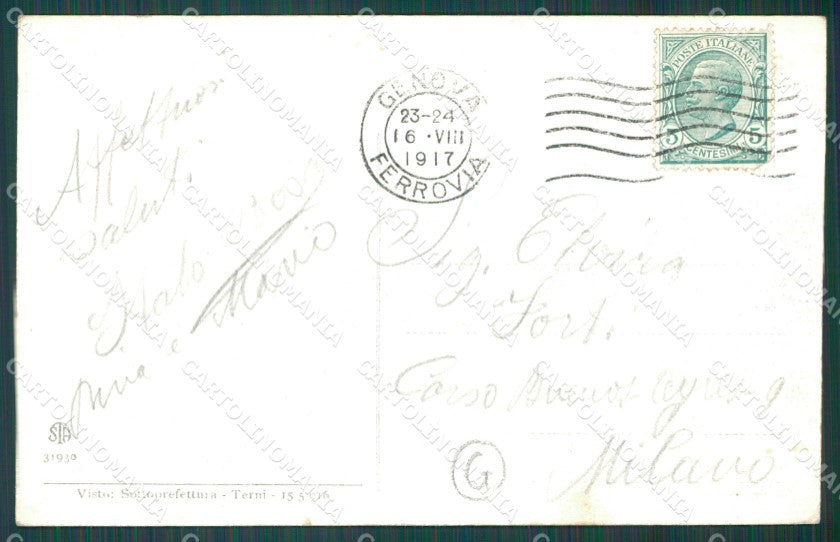 Affettuosi
saluti
Mario
STA
31930
Visto: Sottoprefettura - Terni - 15 5 916
GENOVA
23-24
16 · VIII
1917
FERROVIA
POSTE ITALIANE
5 5
CENTESIMI
Sig. Elvira
Corso Buenos Ayres 9
Milano
G
CARTOLINOMANIA